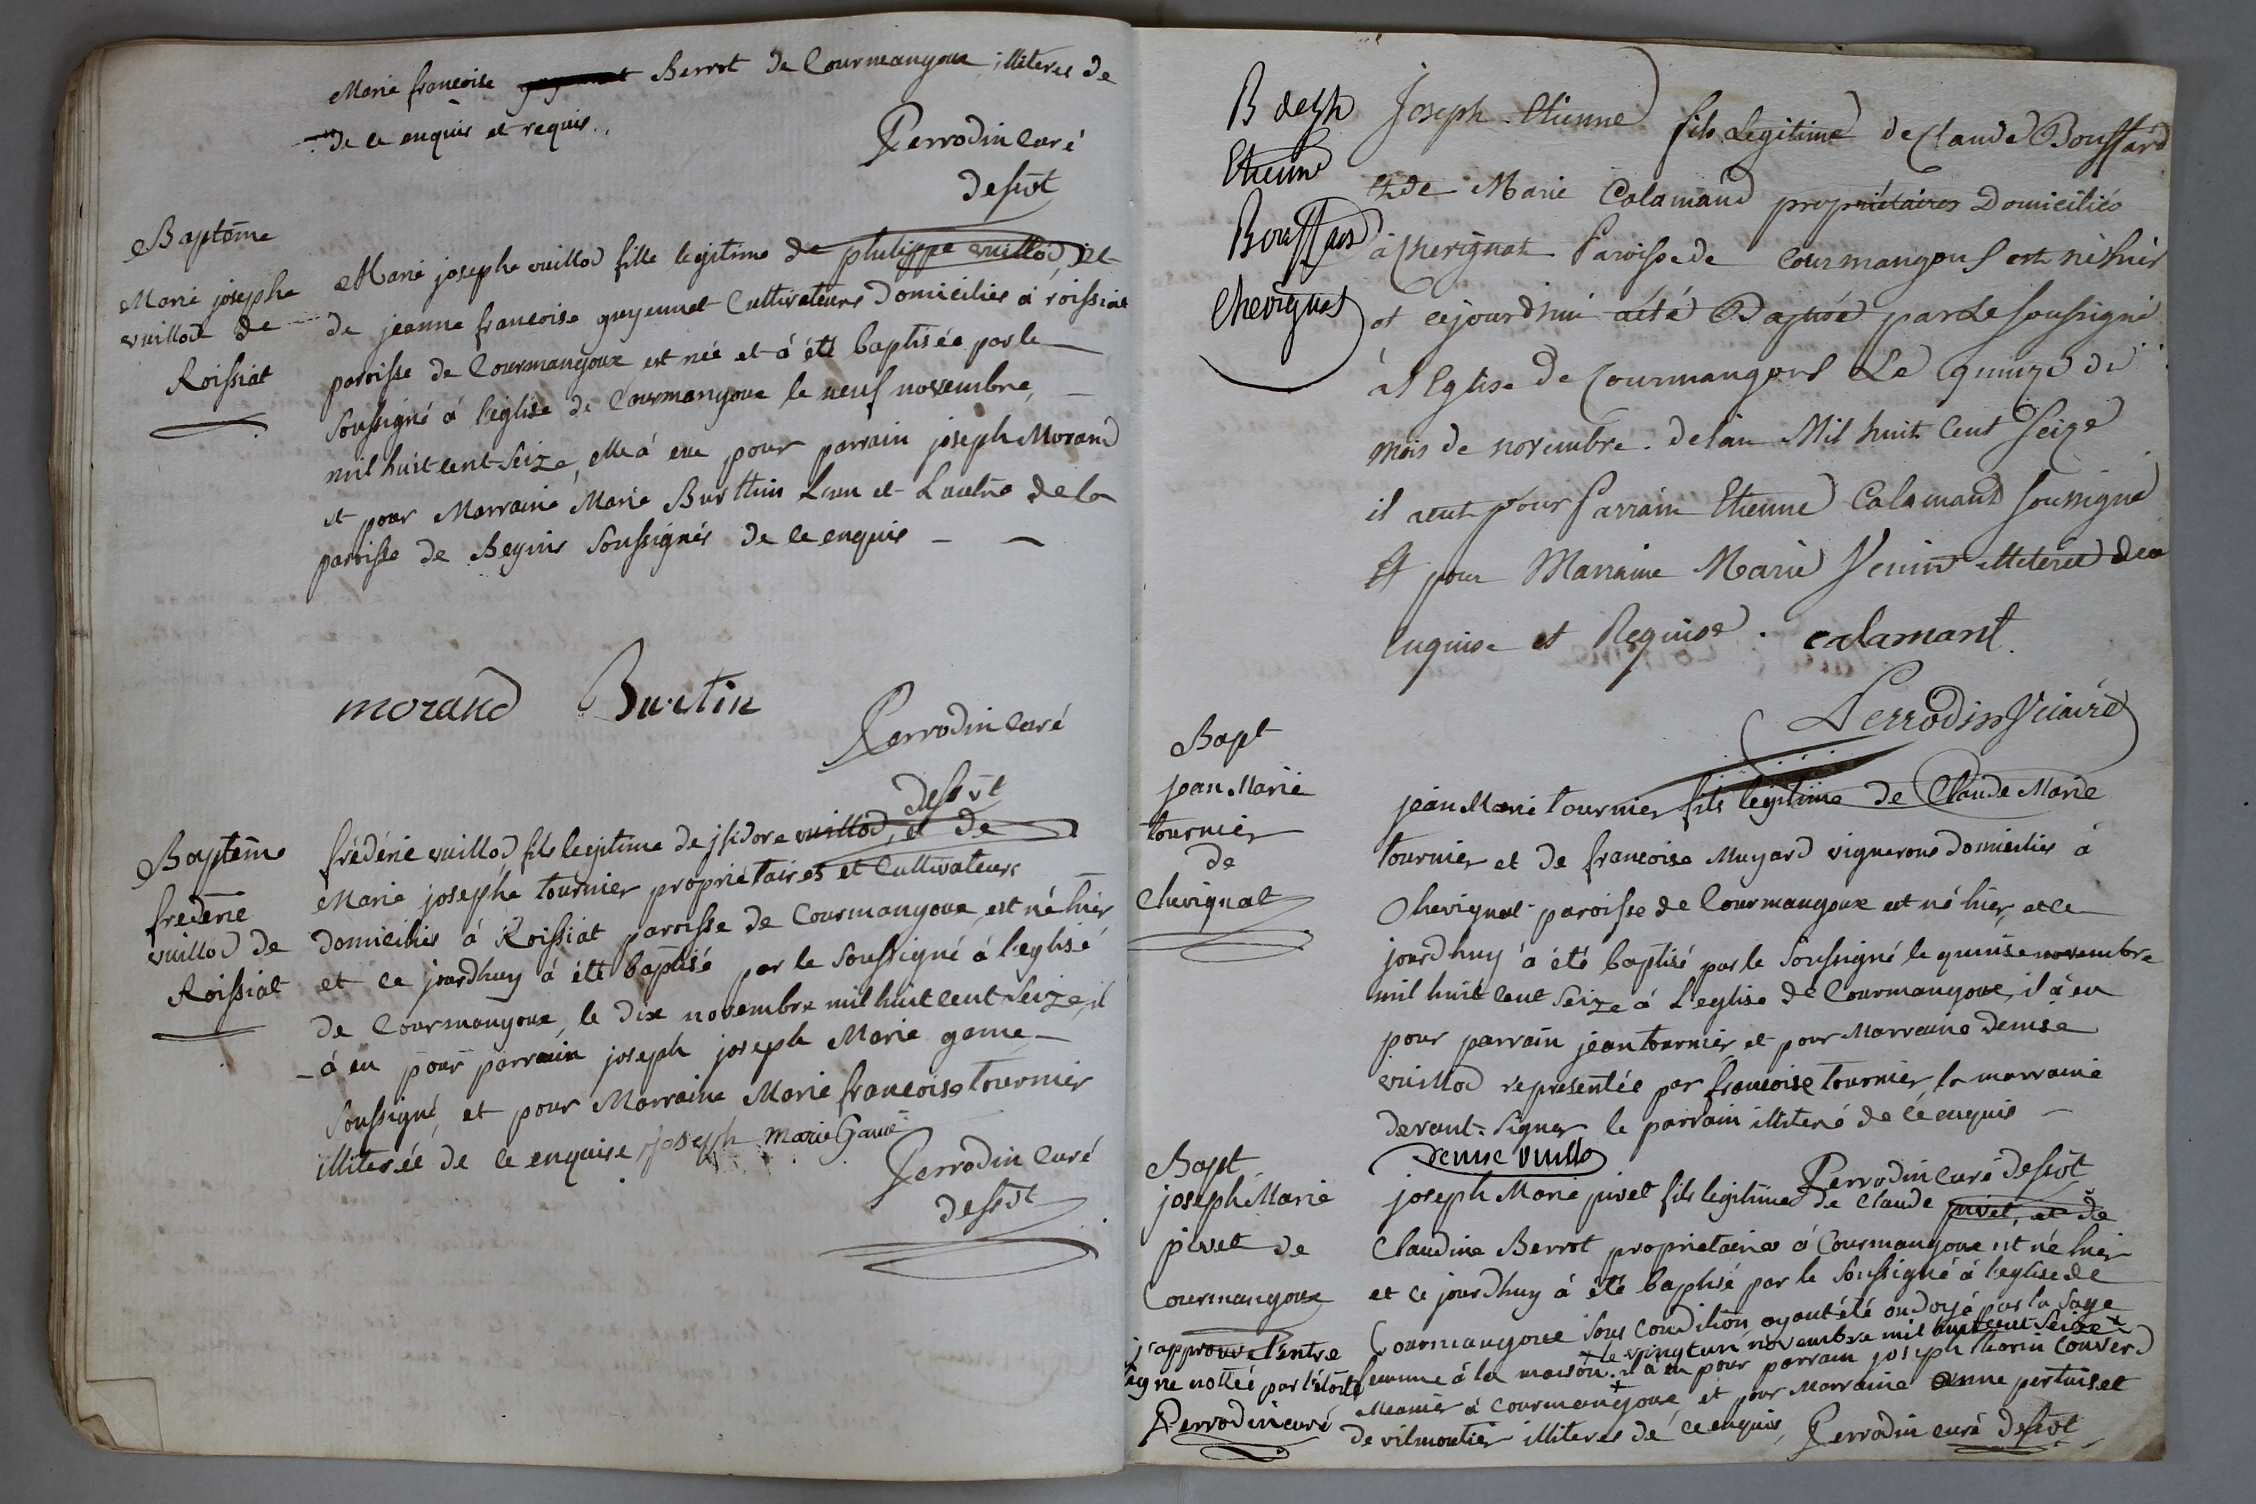 Marie francoise Berrot de Courmangoux, illiteres de
de ce enquis et requis.
Perrodin curé
dessvt
Baptême
Marie josephe
vuillod de
Roissiat
Marie josephe vuillod fille legitime de philippe vuillod, et
de jeanne francoise guyennet Cultivateurs domicilies à roissiat
paroisse de Courmangoux est née et à été baptisée par le
soussigné à l'eglise de Courmangoux le neuf novembre,
mil huit cent seize, elle à eu pour parrain joseph Morand
et pour Marraine Marie Burttin L'un et L'autre de la
paroisse de Soussignés de ce enquis
morand Burtin
Perrodin curé
dessvt
Baptême
frederic
vuillod de
Roissiat
fréderic vuillod fils legitime de jsidore vuillod, et de
Marie josephe tournier proprietaires et Cultivateurs
domicilies à Roissiat paroisse de Courmangoux est né hier
et ce jourdhuy à été baptisé par le soussigné à l'eglise
de Courmangoux, le dix novembre mil huit cent seize, il
à eu pour parrain joseph joseph Marie game
soussigné, et pour Marraine Marie francoise tournier
illiterée de ce enquise joseph marie Game
Perrodin curé
dessvt
B de jh
Etienne
Bouffard
Chevignat
Joseph Etienne fils Legitime de Claude Bouffard
et de Marie Calamand propriétaires Domiciliés
à Chevignat Paroisse de Courmangoux est né hier
et cejourdhui aété Baptisé par Le soussigné
à l'Eglise de Courmangoux Le quinze du
mois de novembre de l'an Mil huit Cent Seize
il aeut pour Parrain Etienne Calamand soussigné
et pour Marraine Marie illeterée de ce
enquise et Requise. calamant
Perrodin Vicaire
Bapt
jean Marie
tournier
de
Chevignat
jean Marie tournier fils legitime de Claude Marie
tournier et de francoise Muyard vignerons domicilies à
Chevignat paroisse de Courmangoux est né hier, et ce
jourdhuy à été baptisé par le soussigné le quinse novembre
mil huit cent seize à L'eglise de Courmangoux, il à eu
pour parrain jean tournier, et pour Marraine denise
vuillod representée par francoise tournier, la marraine
devant signer le parrain illiteré de ce enquis
denise vuillod
Perrodin curé dessvt
Bapt
joseph Marie
pivet de
Courmangoux
joseph Marie pivet fils legitime de Claude pivet, et de
Claudine Berrot proprietaires à Courmangoux est né hier
et ce jourdhuy à été baptisé par le soussigné à l'eglise de
Courmangoux sous condition, ayant été ondoyé par la sage
+ le vingt un novembre mil huit cent seize +
femme à la maison. + il à eu pour parrain joseph thorin Couver
Meunier à Courmangoux, et pour Marraine anne pertuiset
de vilmoutier illiteres de ce enquis, Perrodin curé dessvt
j'approuve l'entre
ligne nottée par l'étoile
Perrodin curé